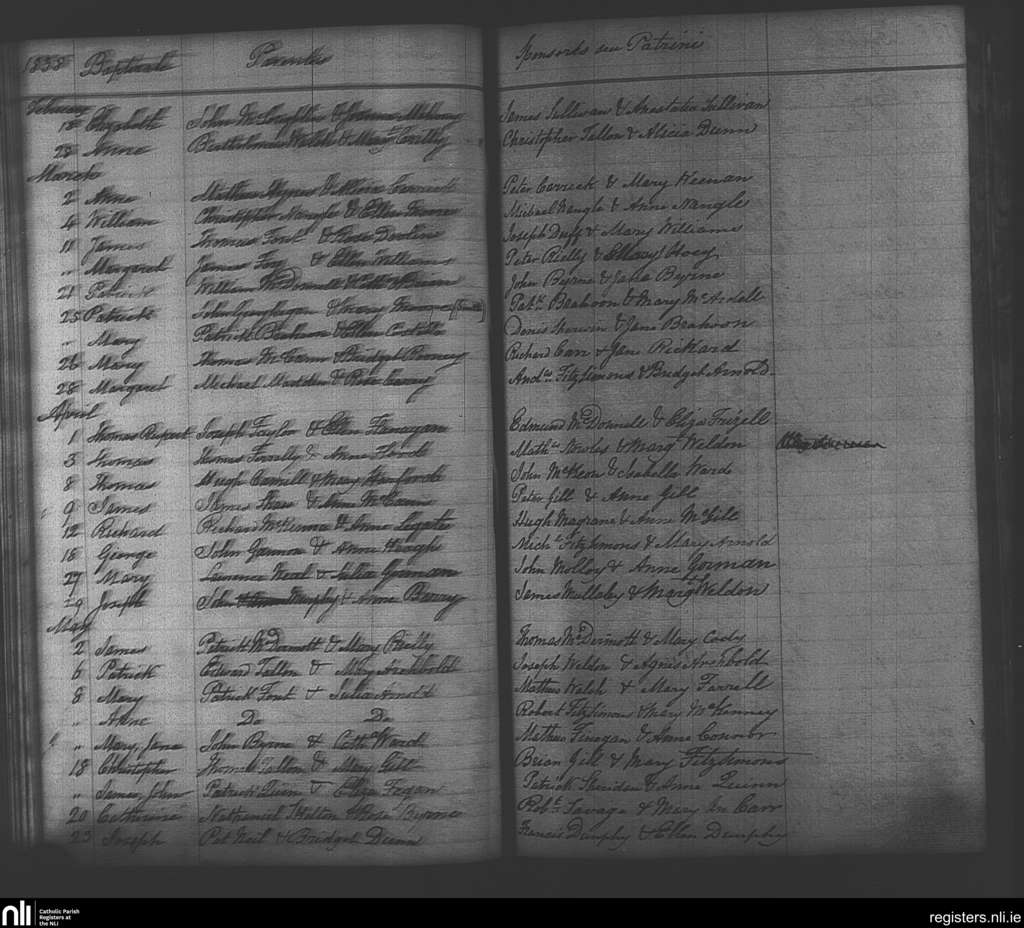 1838 Baptizati Parentes Sponsores seu Patrini
February
18 Elizabeth John Mc Loughlin & James Sullivan & Anastatia Sullivan
28 Anne Bartholomew Walsh & Mary Reilly Christopher Tallon & Alicia Dunn
March
2 Anne Mathew Hynes & Alicia Carrick Peter Carrick & Mary Keenan
4 William Christopher Nangle & Ellen Michael Nangle & Anne Nangle
11 James Thomas Font & Rose Joseph Duff & Mary Williams
" Margaret James Foy & Ellen Williams Peter Rielly & Mary Hoey
21 Patrick William McDonnell & Byrne John Byrne & Jane Byrne
25 Patrick John Geoghegan & Mary Patk. Brahoon & Mary McArdell
" Mary Patrick & Ellen Costello Denis Sherwin & Jane Brahoon
26 Mary Thomas McCann & Bridget Rooney Richard Carr & Jane Rickard
28 Margaret Michael Madden & Rose Andw. Fitzsimons & Bridget Arnold
April
1 Thomas Rupert Joseph Taylor & Ellen Flanagan Edmund McDonnell & Eliza Frizell
3 Thomas Thomas Farrelly & Anne Flood Mathw. Nowles & Margt. Weldon
8 Thomas Hugh Carroll & Mary Hanford John McKeon & Isabella Ward
9 James James Shaw & Anne McCann Peter Gill & Anne Gill
12 Richard Richard McKenna & Anne Legate Hugh Magrane & Anne McGill
18 George John Gannon & Anne Keogh Michl. Fitzsimons & Mary Arnold
27 Mary Lawrence Neal & Julia Gorman John Molloy & Anne Gorman
29 Joseph John Murphy & Anne Berry James Mullaly & Margt. Weldon
May
2 James Patrick McDermott & Mary Reilly Thomas McDermott & Mary Cody
6 Patrick Edward Tallon & Mary Archbold Joseph Weldon & Agnes Archbold
8 Mary Patrick Font & Julia Arnold Mathew Walsh & Mary Farrell
" Anne Do Do Robert Fitzsimons & Mary McKenney
" Mary, Jane John Byrne & Cathe. Ward Mathew Finegan & Anne Connor
18 Christopher Thomas Tallon & Mary Gill Brian Gill & Mary Fitzsimons
" James, John Patrick Quinn & Eliza Fegan Patrick Sheridan & Anne Quinn
20 Catherine Nathaniel Skelton & Rose Byrne Robt. Savage & Mary An Carr
23 Joseph Pat Neil & Bridget Dunn Francis Dunphy & Ellen Dunphy
nli
Catholic Parish
Registers at
the NLI
registers.nli.ie